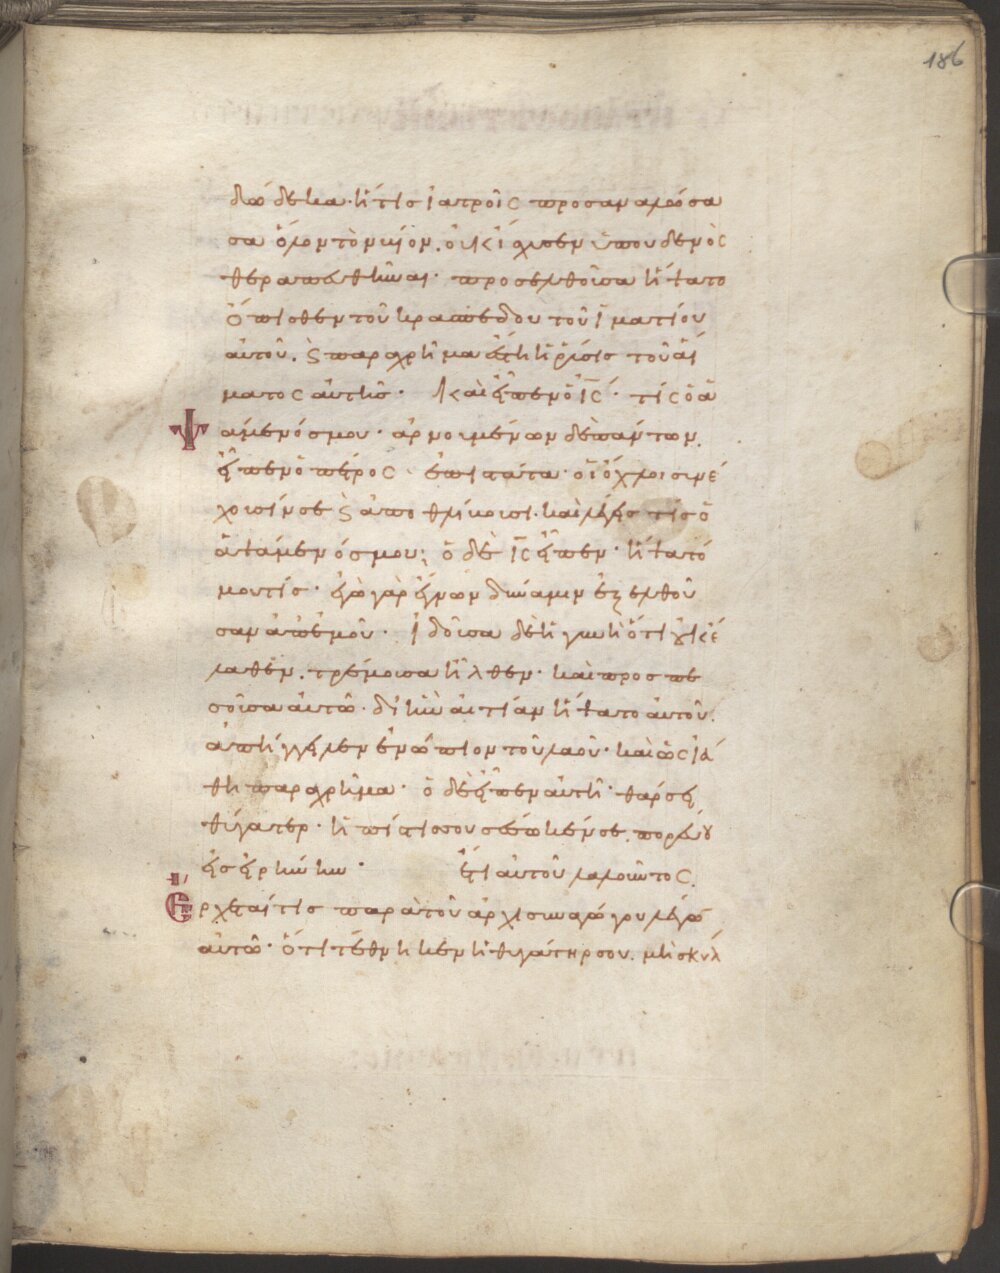 δώδεκα· ἥτις ἰατροῖς προσαναλώσα
σα ὅλον τὸν βίον. οὐκ ἴσχυσεν ὑπουδενὸς
θεραπευθῆναι· προσελθοῦσα ἥψατο
ὄπισθεν τοῦ κρασπέδου τοῦ ἱματίου
αὐτοῦ. ϗ παραχρῆμα ἔστη ἡ ῥύσις τοῦ αἵ
ματος αὐτῆς· Καὶ εἶπεν ὁ ι̅ς̅· τίς ὁ ἁ
Ψάμενός μου· ἀρνουμένων δὲ πάντων.
εἶπεν ὁ πέτρος ἐπιστάτα· οἱ ὄχλοι συνέ
χουσίν σε ϗ ἀποθλίβουσι. καὶ λέγεις τίς ὁ
ἁψάμενός μου; ὁ δὲ ι̅ς̅ εἶπεν· ἥψατό
μου τίς· ἐγὼ γὰρ ἔγνων δύναμιν ἐξελθοῦ
σαν ἀπεμοῦ· ἰδοῦσα δὲ ἡ γυνὴ ὅτι οὐκ ἔ
λαθεν. τρέμουσα ἦλθεν· καὶ προσπε
σοῦσα αὐτῶ· δι ἣν αἰτίαν ἥψατο αὐτοῦ.
ἀπήγγειλεν ἐνώπιον τοῦ λαοῦ· καὶ ὡς ἰά
θη παραχρῆμα· ὁ δὲ εἶπεν αὐτῆ· θάρσει
θύγατερ· ἡ πίστις σου σέσωκέν σε. πορεύου
εἰς εἰρήνην· ἔτι αὐτοῦ λαλοῦντος.
Ερχεταί τις παρὰ τοῦ ἀρχισυναγώγου λέγων
αὐτῶ· ὅτι τέθνηκεν ἡ θυγάτηρ σου. μὴ σκύλ
186